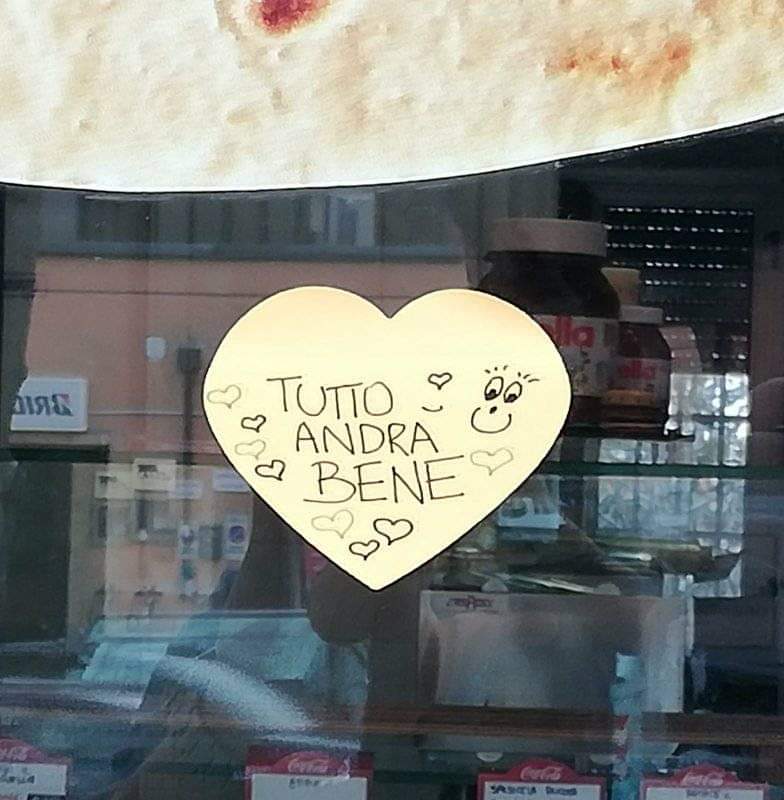 TUTTO
ANDRA
BENE
lla
ella
BRID
Coca-Cola
Coca-Cola
Coca-Cola
Coca-Cola